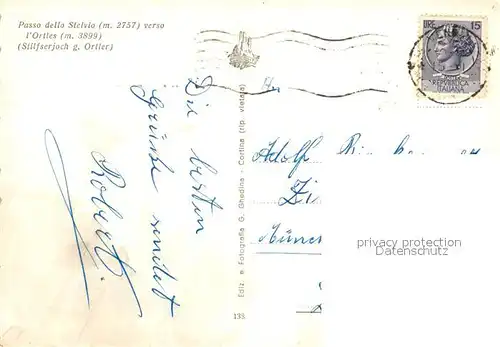 Passo dello Stelvio (m. 2757) verso
l'Ortles (m. 3899)
(Stilfserjoch g. Ortler)
LIRE 15
REPVBBLICA
ITALIANA
Die besten
Grüsse sendet
Robert.
Ediz. e Fotografia G. Ghedina - Cortina (rip. vietata)
133
Adolf
privacy protection
Datenschutz